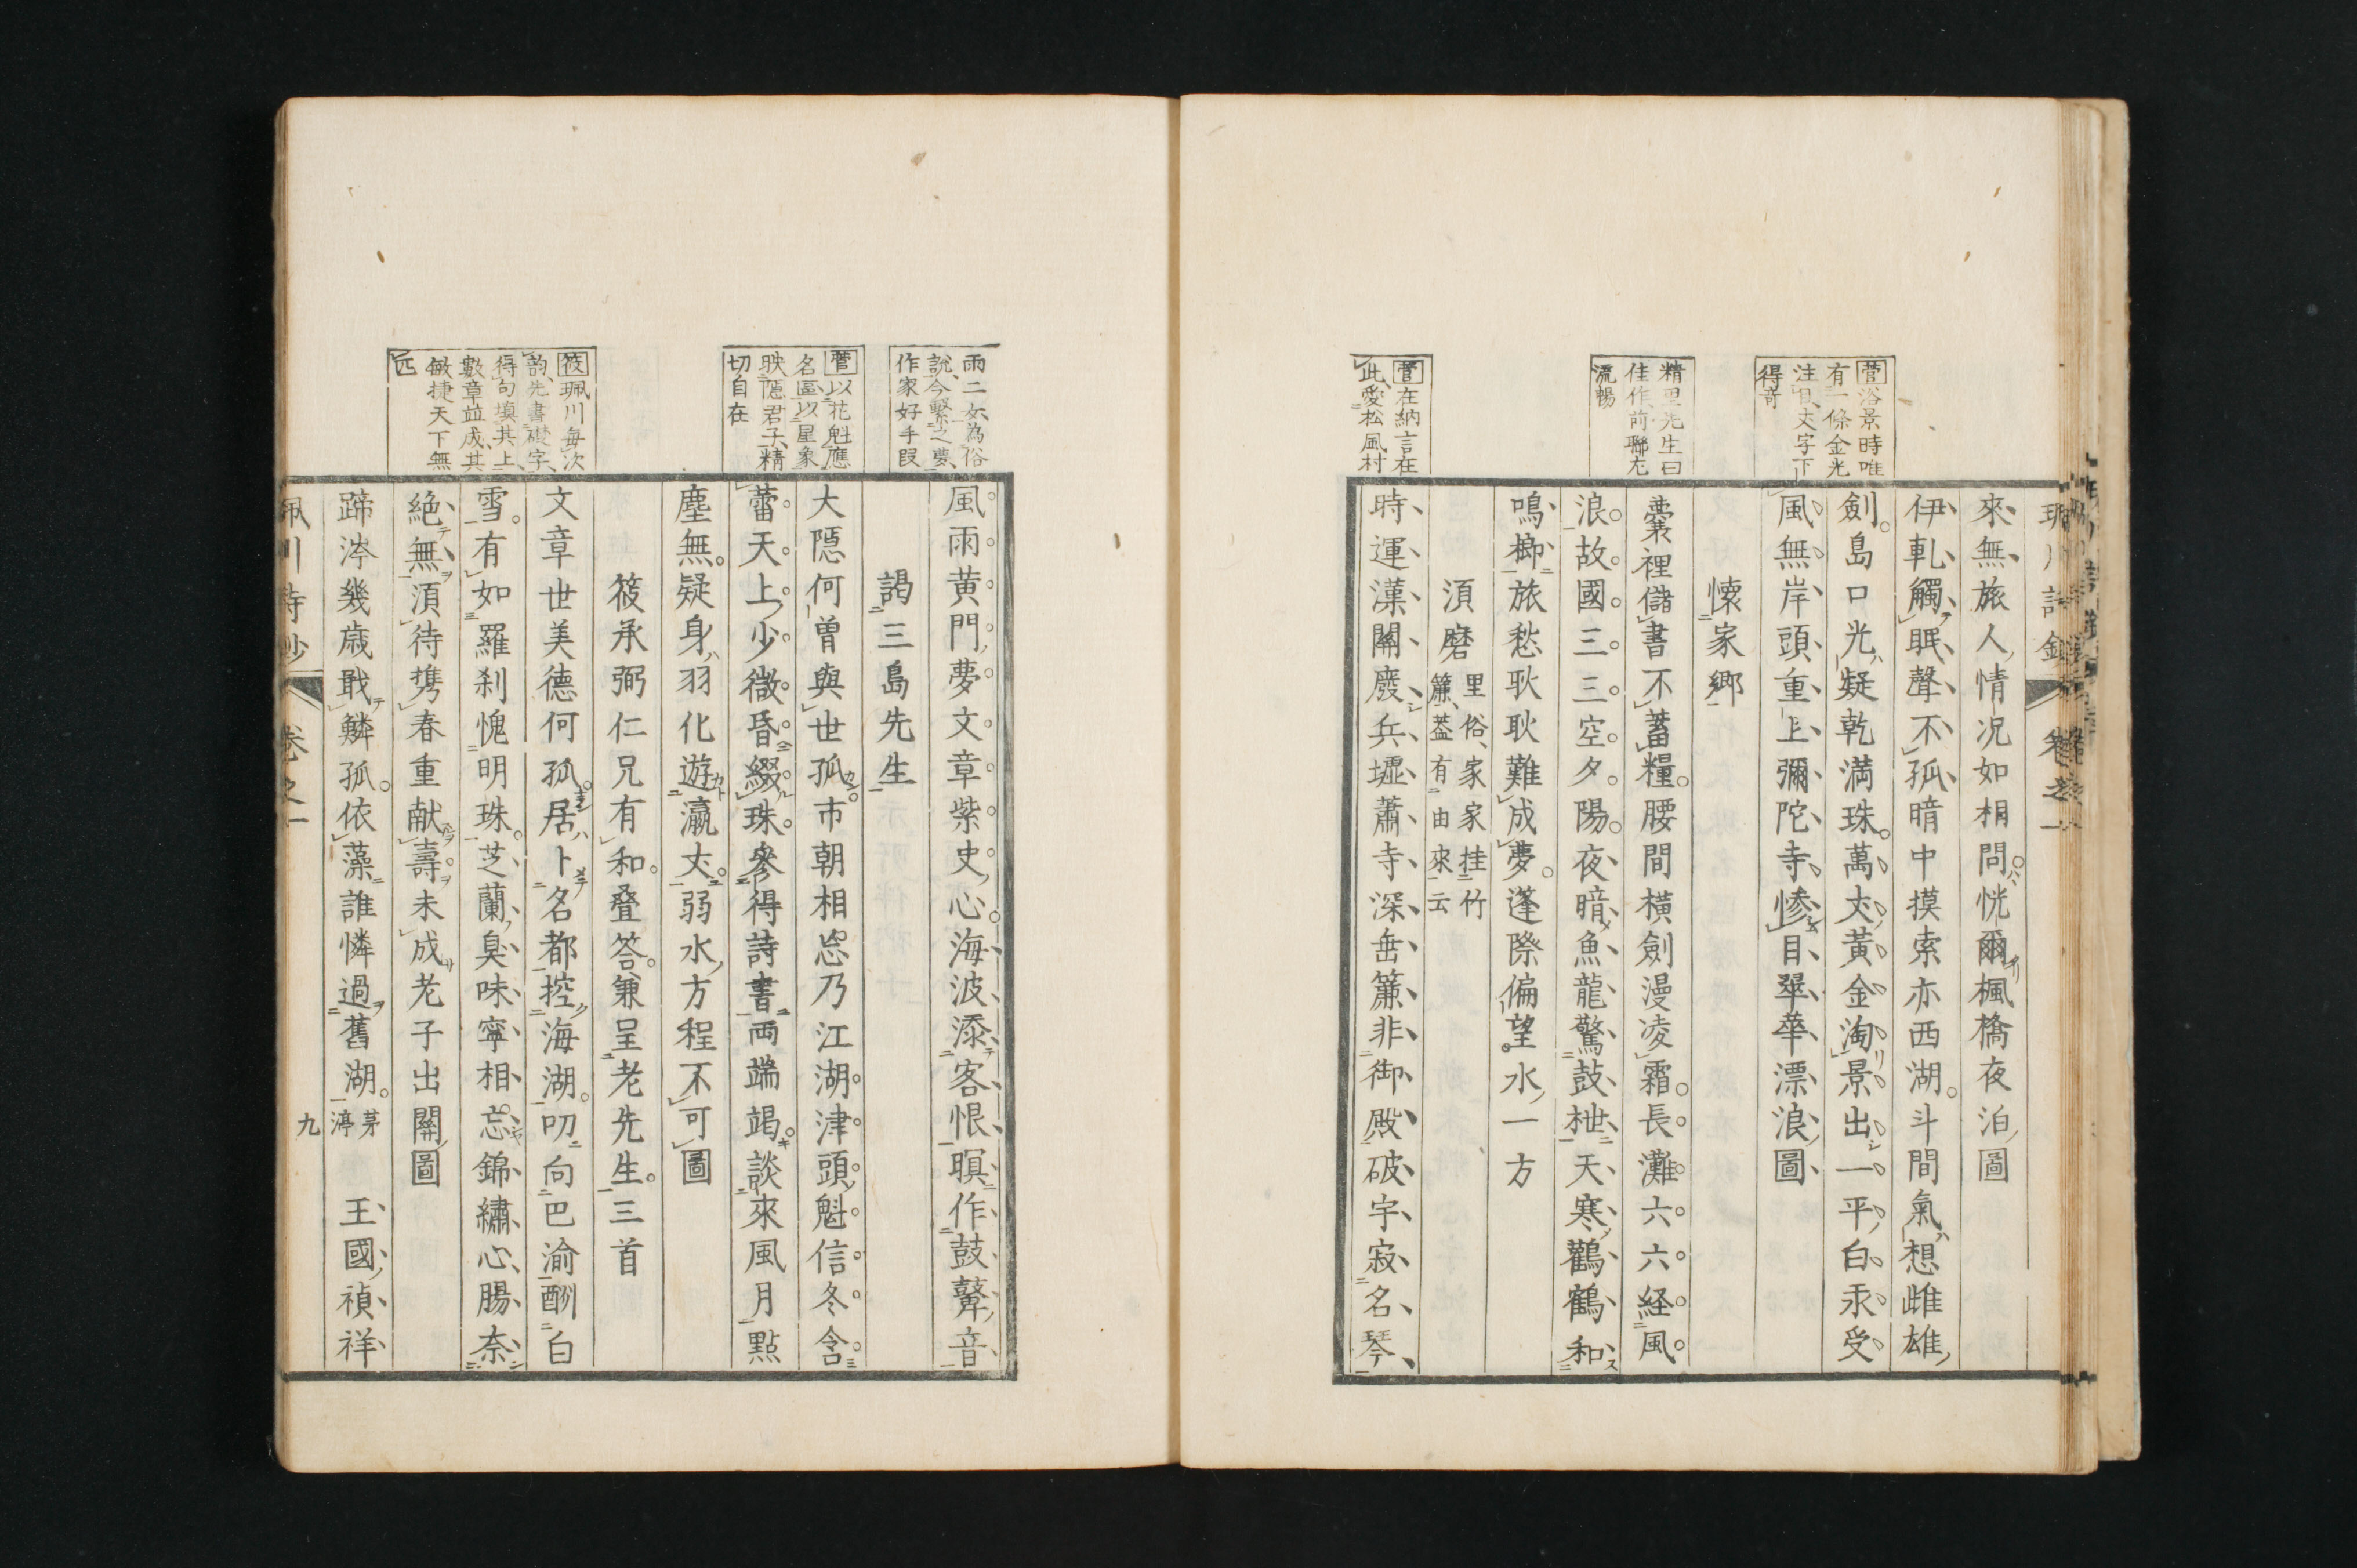 菅浴景時唯
有一條金光
注目丈字下
得奇
精里先生曰
佳作前聯尤
流暢
菅在納言在
此愛松風村
來無旅人情况如相問恍爾楓橋夜泊圖
伊軋觸眠聲不孤暗中摸索亦西湖斗間氣想雌雄
劍島口光疑乾満珠萬丈黃金淘景出一平白汞受
風無岸頭重上彌陀寺慘目翠華漂浪圖
懷家鄉
囊裡儲書不蓄糧腰間橫劍漫凌霜長灘六六経風
浪故國三三空夕陽夜暗魚龍驚鼓枻天寒鸛鶴和
鳴榔旅愁耿耿難成夢蓬際偏望水一方
須磨
里俗家家挂竹
簾葢有由來云
時運漢關廢兵墟蕭寺深垂簾非御殿破宇寂名琴
雨二女為俗
說今繫之夢
作家好手段
菅以花魁應
名區以星象
映隱君子精
切自在
筱珮川每次
韵先書礎字
得句填其上
數章竝成其
敏捷天下無
匹
風雨黄門夢文章紫史心海波添客恨暝作鼓鼙音
謁三島先生
大隱何曽與世孤市朝相忘乃江湖津頭魁信冬含
蕾天上少微昏綴珠參得詩書両端竭談來風月點
塵無疑身羽化遊瀛丈弱水方程不可圖
筱承弼仁兄有和叠答兼呈老先生三首
文章世美德何孤居卜名都控海湖叨向巴渝酬白
雪有如羅刹愧明珠芝蘭臭味寧相忘錦繡心腸奈
絶無須待携春重献壽未成老子出關圖
蹄涔幾歳戢鱗孤依藻誰憐過舊湖
茅渟
王國禎祥
珮川詩鈔
卷之一
九